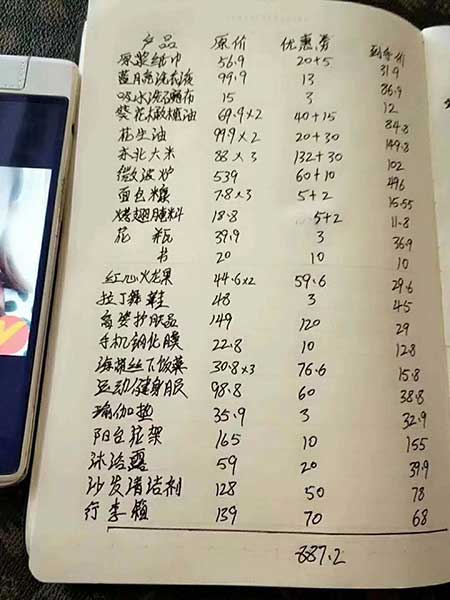 产品 原价 优惠劵 到手价
原浆纸巾 56.9 20+5 31.9
蓝月亮洗衣液 99.9 13 86.9
吸水洗碗布 15 3 12
葵花橄榄油 69.9×2 40+15 84.8
花生油 99.9×2 20+30 149.8
东北大米 88×3 132+30 102
微波炉 539 60+10 496
面包糠 7.8×3 5+2 15.55
烤翅腌料 18.8 5+2 11.8
花瓶 39.9 3 36.9
书 20 10 10
红心火龙果 44.6×2 59.6 29.6
拉丁舞鞋 48 3 45
姿护肤品 149 120 29
手机钢化膜 22.8 10 12.8
海螺丝下饭菜 30.8×3 76.6 15.8
运动健身服 98.8 60 38.8
瑜伽垫 35.9 3 32.9
阳台花架 165 10 155
沐浴露 59 20 39.9
沙发清洁剂 128 50 78
行李箱 139 70 68
887.2